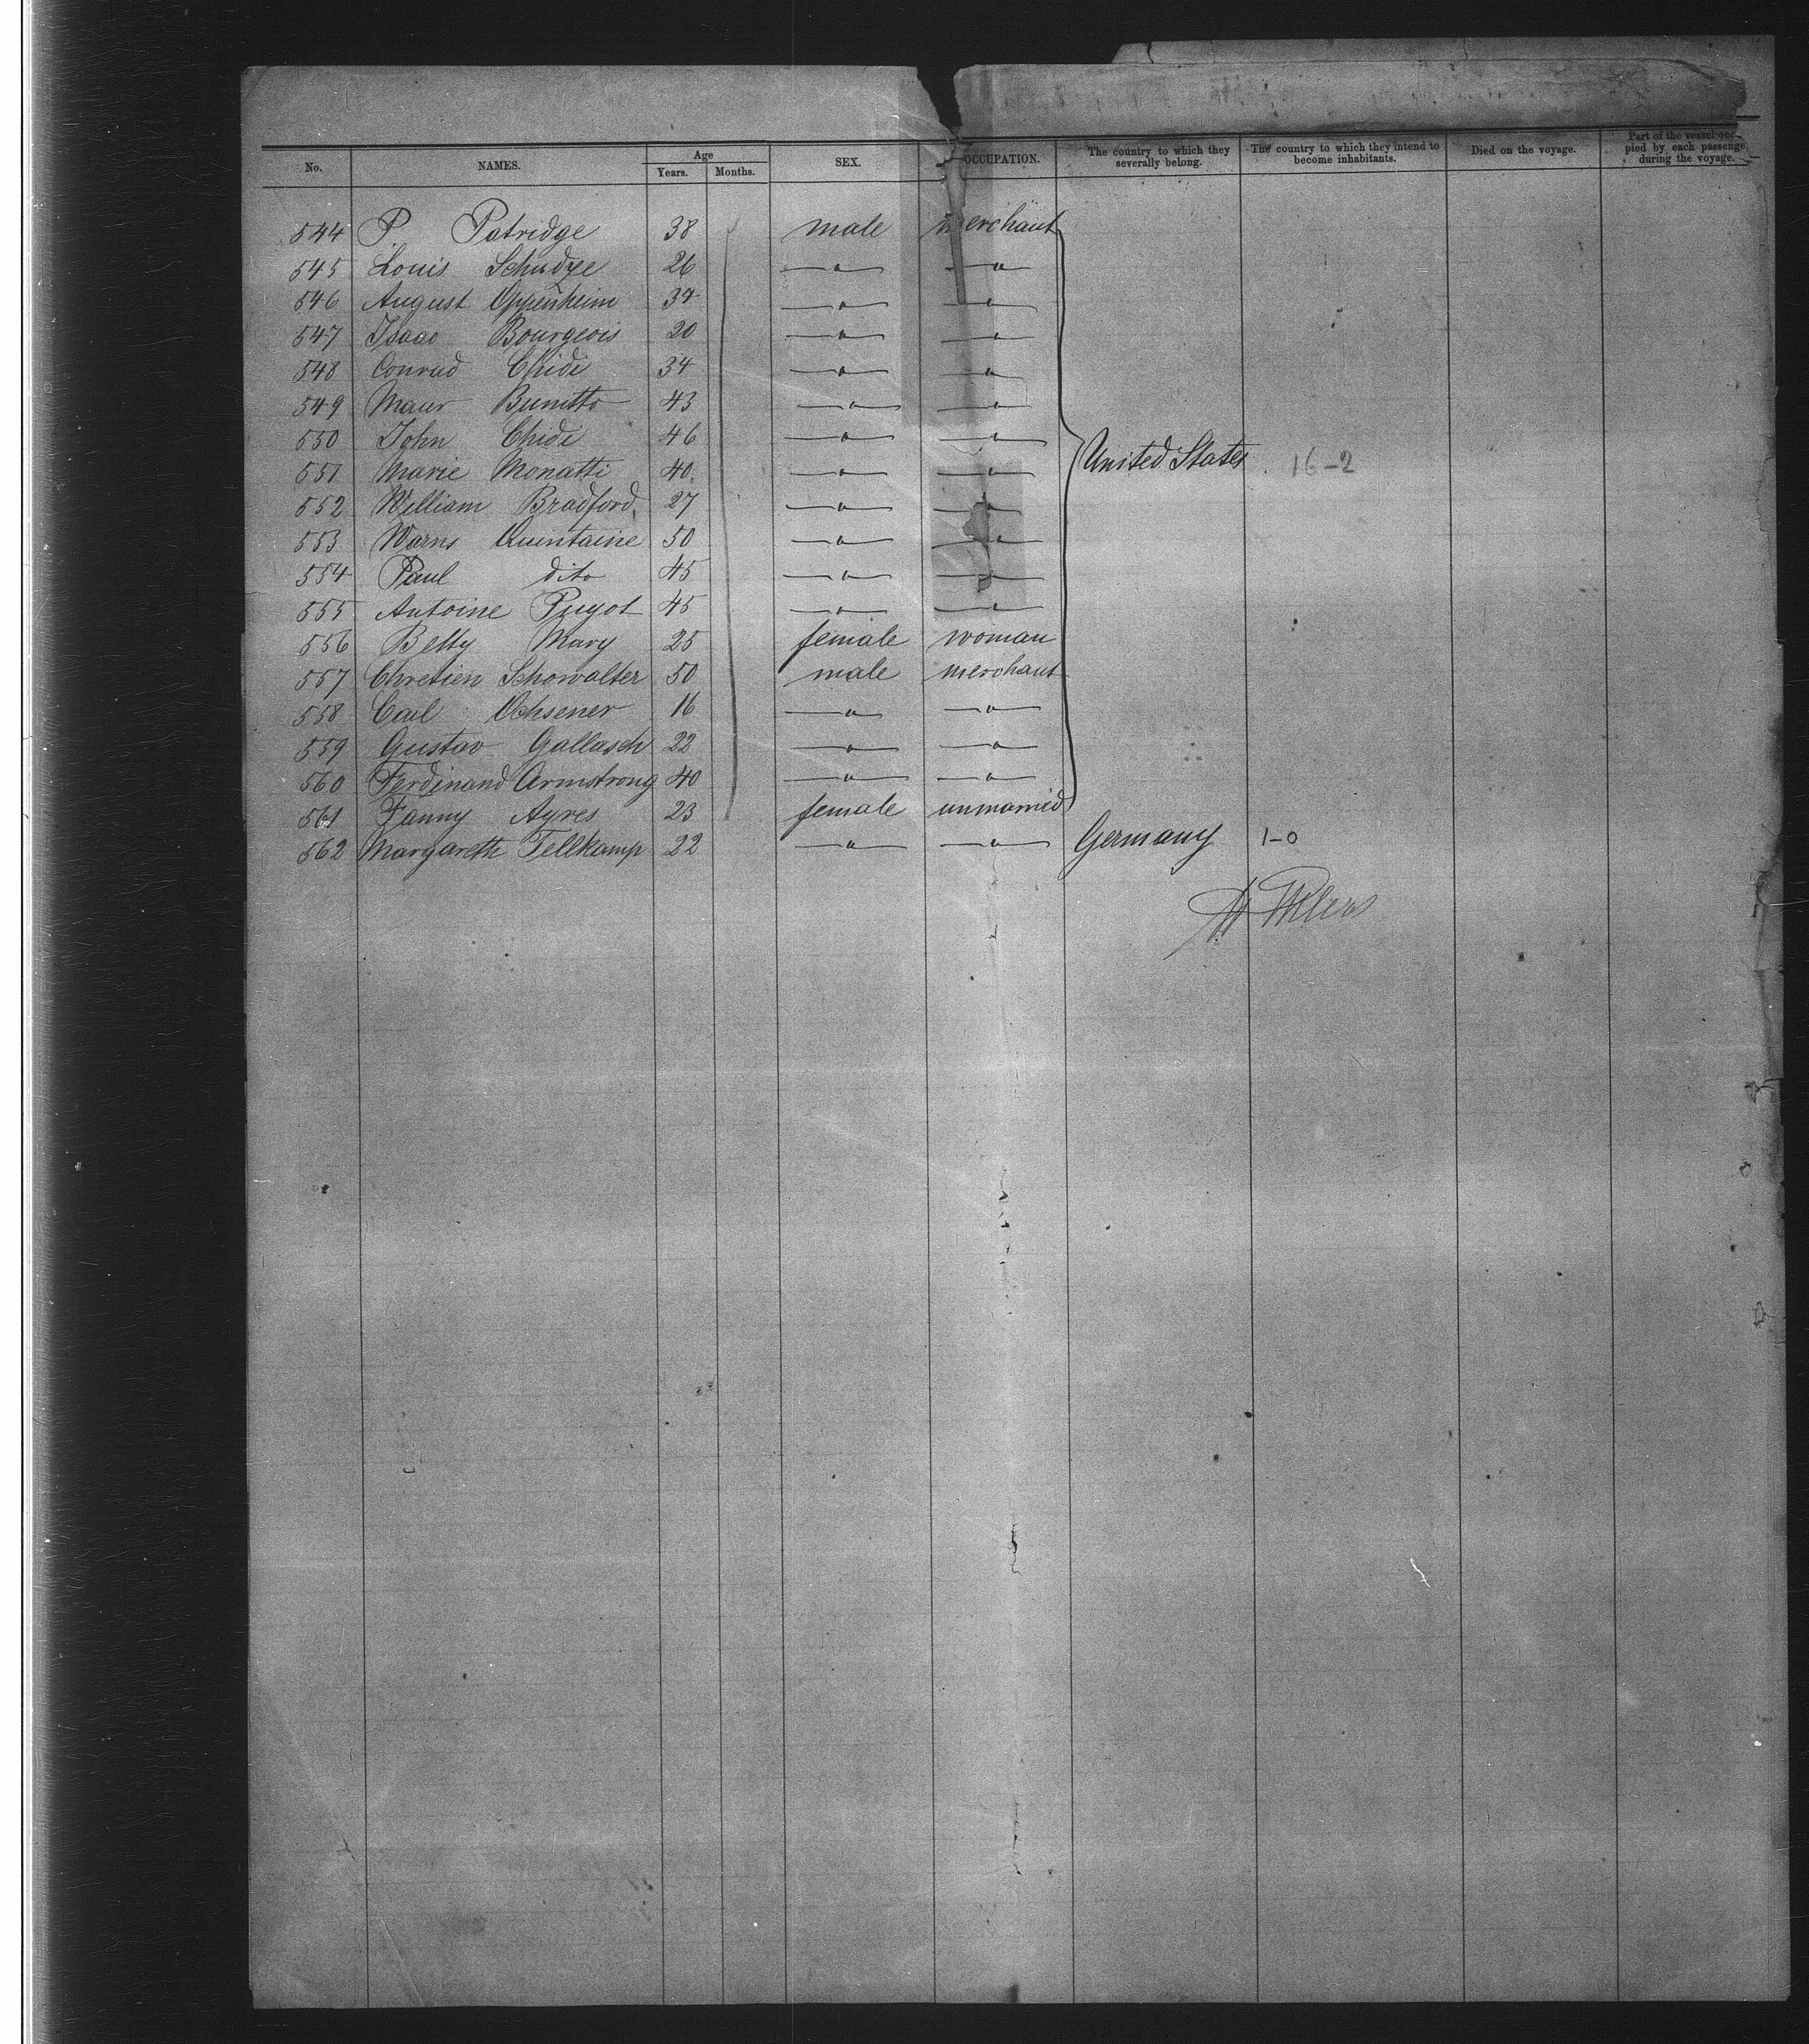 No. NAMES. Age Years. Months. SEX. OCCUPATION. The country to which they severally belong. The country to which they intend to become inhabitants. Died on the voyage. Part of the vessel occupied by each passenge during the voyage.
544 P. Patridge 38 male merchant
545 Louis Schudze 26 —"— —"—
546 August Oppenheim 34 —"— —"—
547 Isaac Bourgeois 20 —"— —"—
548 Conrad Chidi 34 —"— —"—
549 Maur Bunitto 43 —"— —"—
550 John Chidi 46 —"— —"—
551 Marie Monatti 40. —"— —"— United States 16-2
552 William Bradford 27 —"— —"—
553 Warns Quintaine 50 —"— —"—
554 Paul dito 45 —"— —"—
555 Antoine Pugot 45 —"— —"—
556 Betty Mary 25 female woman
557 Chretien Schowalter 50 male merchant
558 Carl Ochsener 16 —"— —"—
559 Gustav Gallasch 22 —"— —"—
560 Ferdinand Armstrong 40 —"— —"—
561 Fanny Ayres 23 female unmarried
562 Margareth Tellkamp 22 —"— —"— Germany 1-0